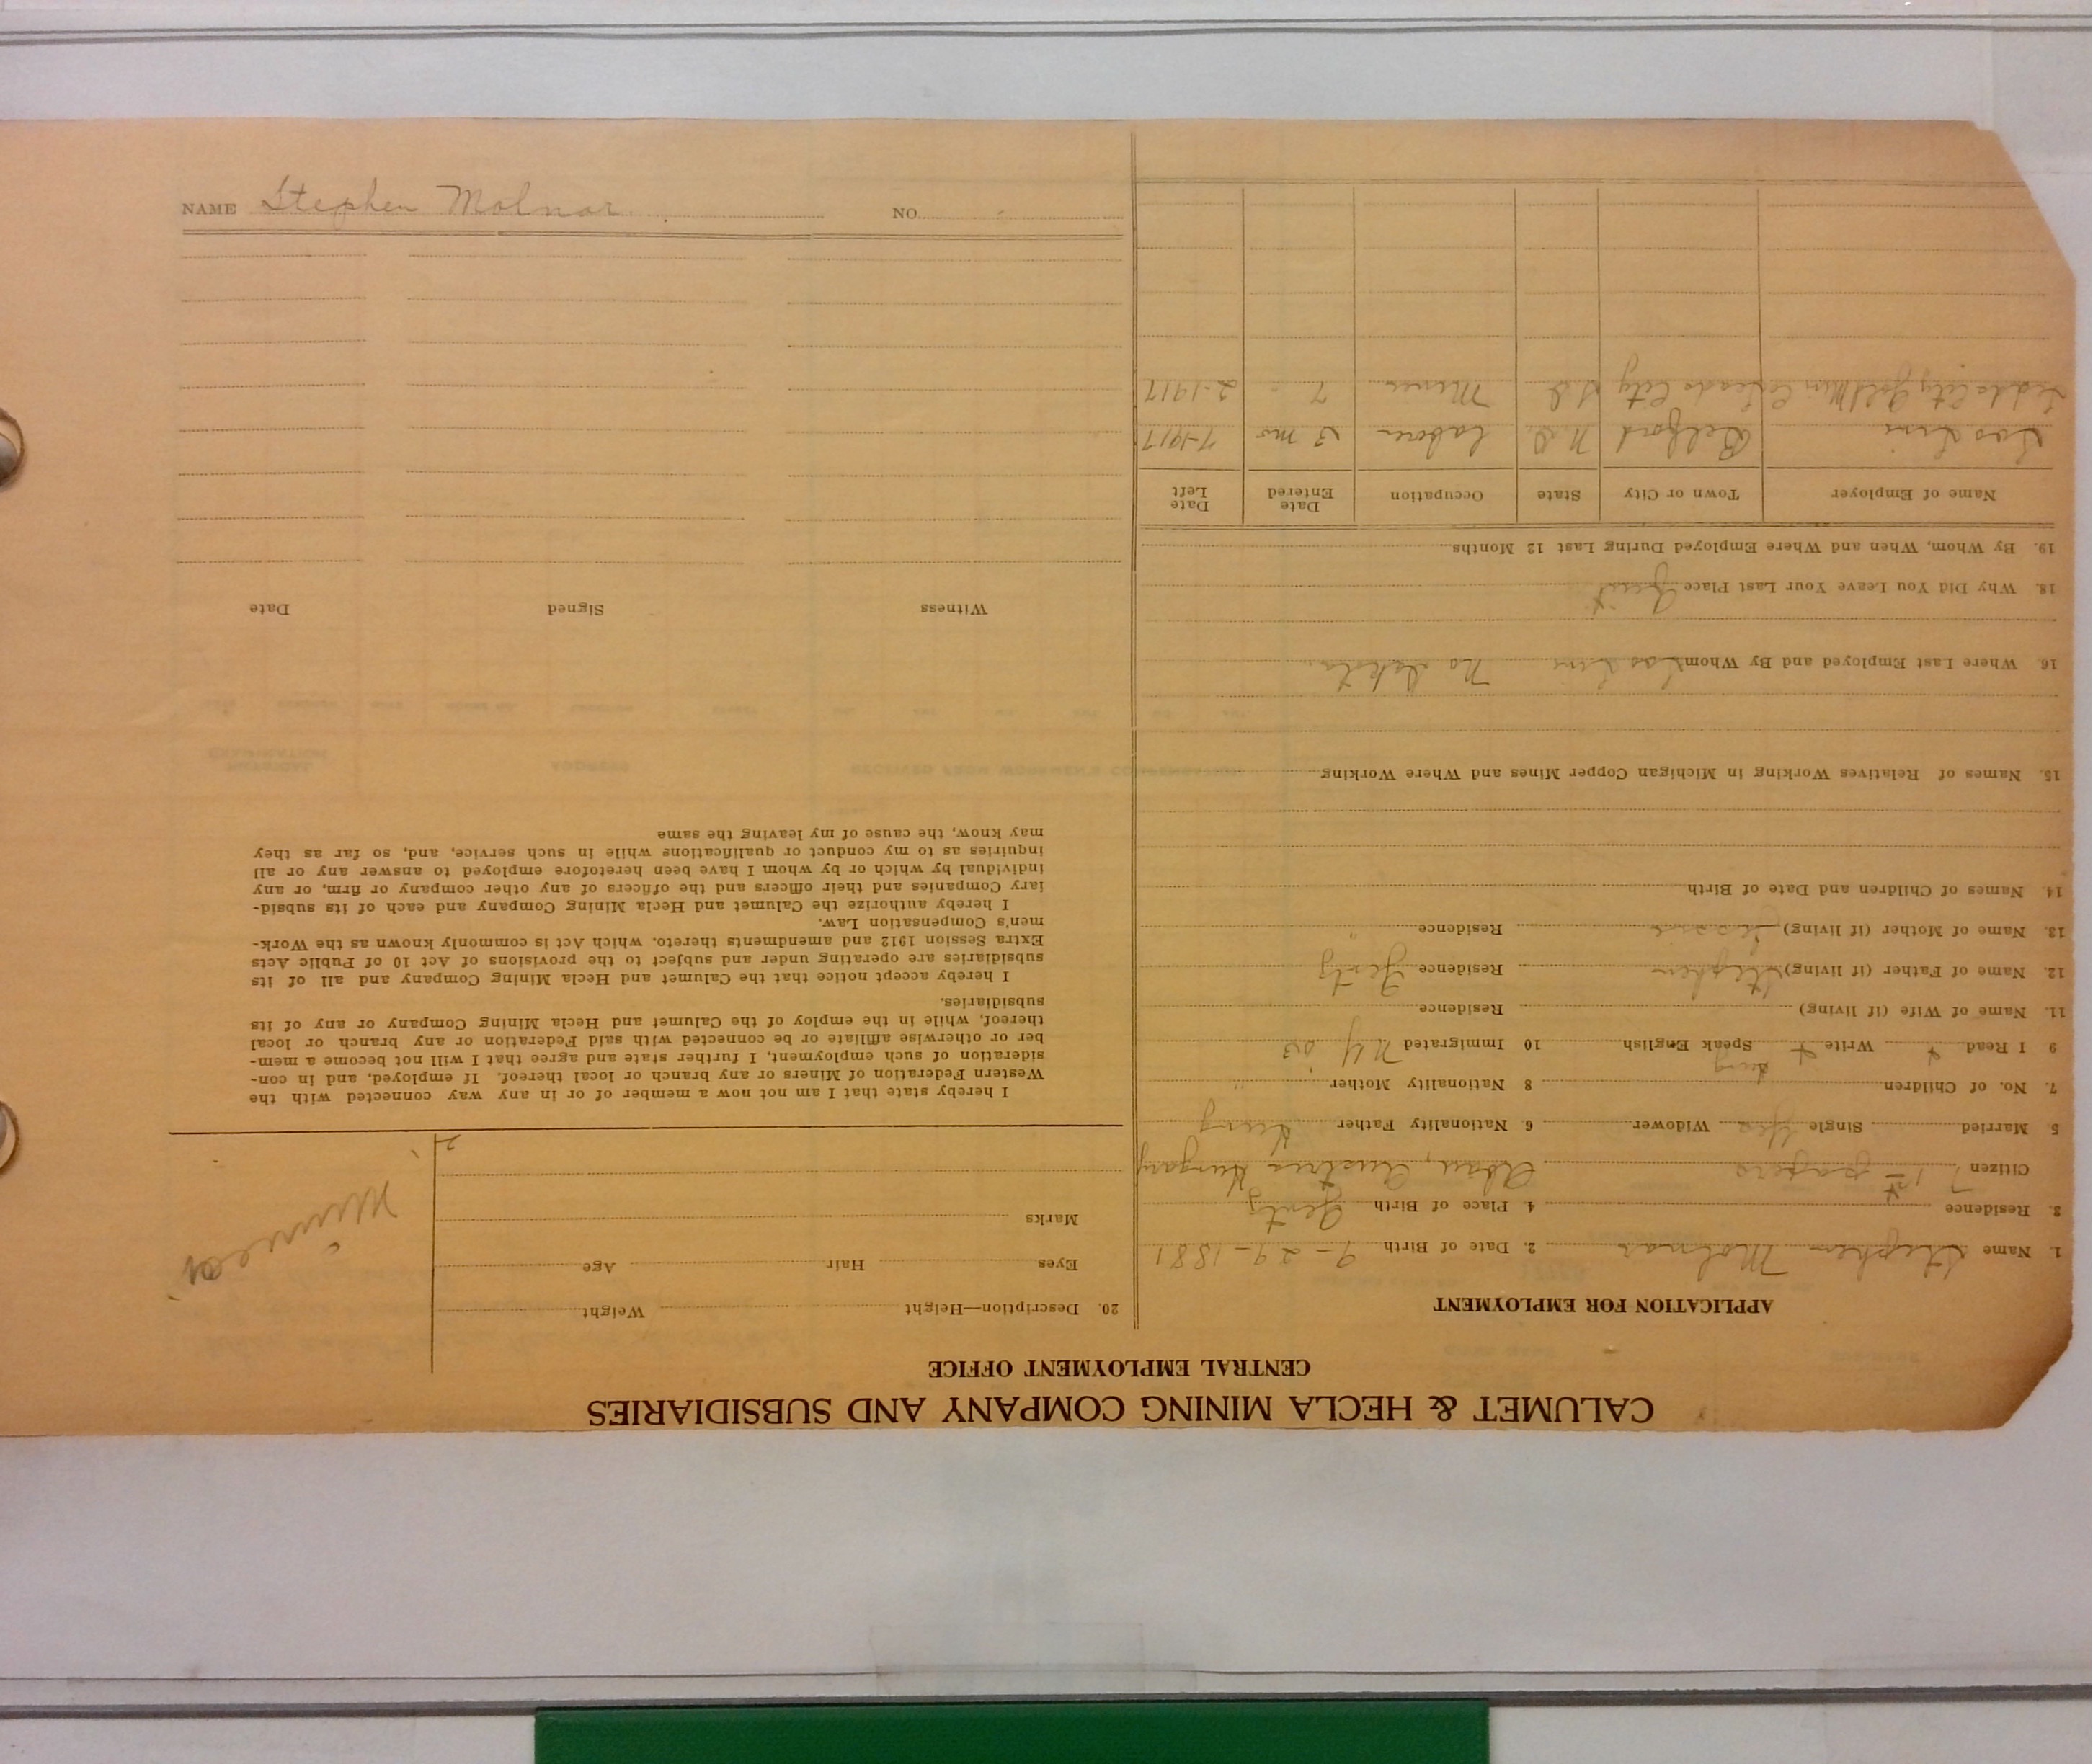 CALUMET & HECLA MINING COMPANY AND SUBSIDIARIES
CENTRAL EMPLOYMENT OFFICE
APPLICATION FOR EMPLOYMENT
1. Name Stephen Molnar 2. Date of Birth 9-29-1881
3. Residence 4. Place of Birth Gentz
Citizen 1st papers Abau, Austria Hungary
5 Married Single Yes Widower 6. Nationality Father Hung
7. No. of Children 8 Nationality Mother "
9 I Read + Write + Speak English Hung 10 Immigrated N.Y.
11. Name of Wife (if living) Residence
12. Name of Father (if living) Stephen Residence Gentz
13. Name of Mother (if living) Residence "
14. Names of Children and Date of Birth
15. Names of Relatives Working in Michigan Copper Mines and Where Working
16. Where Last Employed and By Whom No Dakota
18. Why Did You Leave Your Last Place Quit
19. By Whom, When and Where Employed During Last 12 Months
Name of Employer Town or City State Occupation Date Entered Date Left
Soo Line Belford N.D. Laborer 3 mo 7-1917
City Gold Min Co Leads City S.D Miner 7 " 2-1917
20. Description—Height Weight
Eyes Hair Age
Marks
Miner
I hereby state that I am not now a member of or in any way connected with the
Western Federation of Miners or any branch or local thereof. If employed, and in con-
sideration of such employment, I further state and agree that I will not become a mem-
ber or otherwise affiliate or be connected with said Federation or any branch or local
thereof, while in the employ of the Calumet and Hecla Mining Company or any of its
subsidiaries.
I hereby accept notice that the Calumet and Hecla Mining Company and all of its
subsidiaries are operating under and subject to the provisions of Act 10 of Public Acts
Extra Session 1912 and amendments thereto. which Act is commonly known as the Work-
men's Compensation Law.
I hereby authorize the Calumet and Hecla Mining Company and each of its subsid-
iary Companies and their officers and the officers of any other company or firm, or any
individual by which or by whom I have been heretofore employed to answer any or all
inquiries as to my conduct or qualifications while in such service, and, so far as they
may know, the cause of my leaving the same
Witness Signed Date
NAME Stephen Molnar NO.